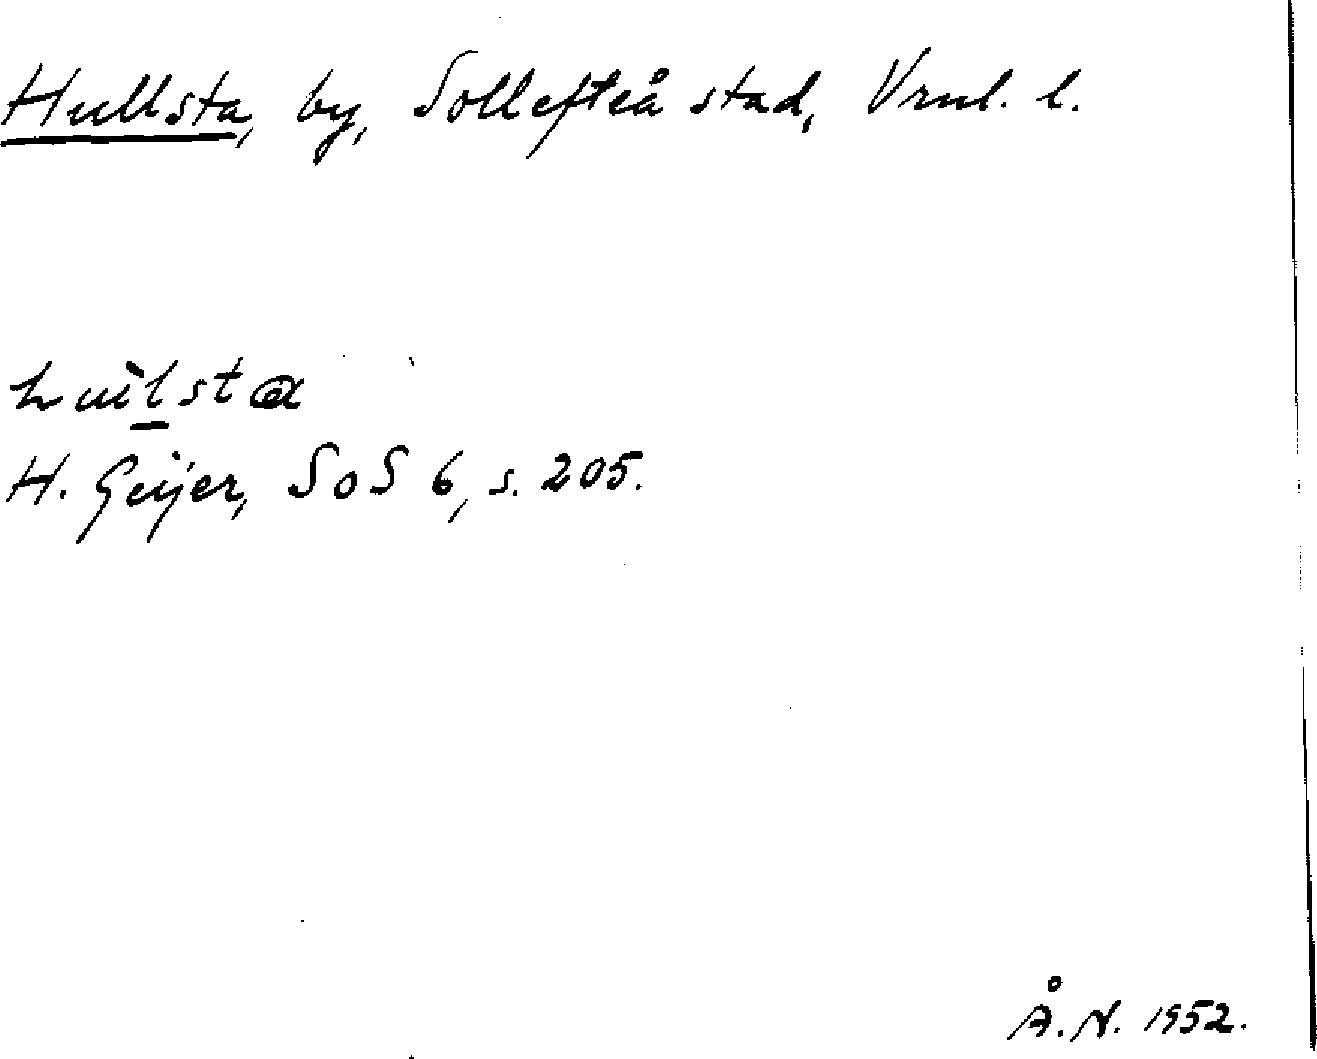 Hullsta, by, Sollefteå stad, Vrnl. l.
H. Geijer, SoS 6, s. 205.
Å. N. 1952.